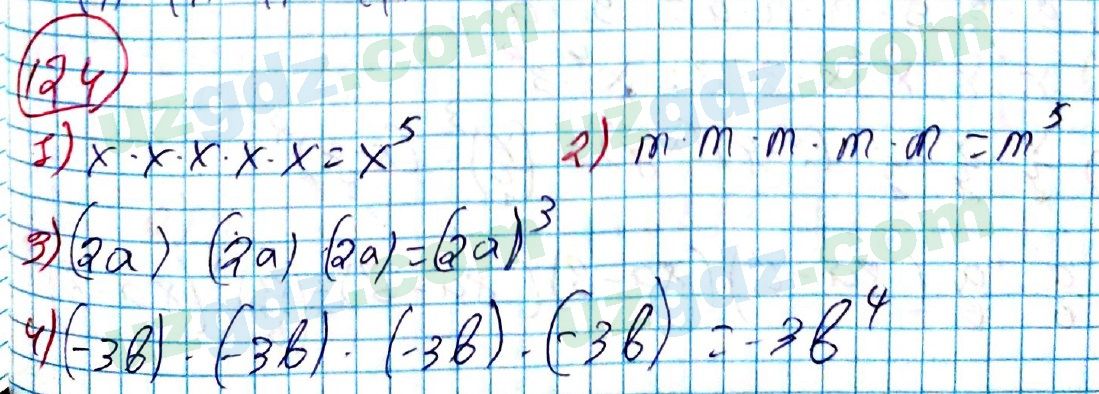 124
1) x · x · x · x · x = x⁵ 2) m · m · m · m · m = m⁵
3) (2a) (2a) (2a) = (2a)³
4) (-3b) · (-3b) · (-3b) · (-3b) = -3b⁴
uzgdz.com